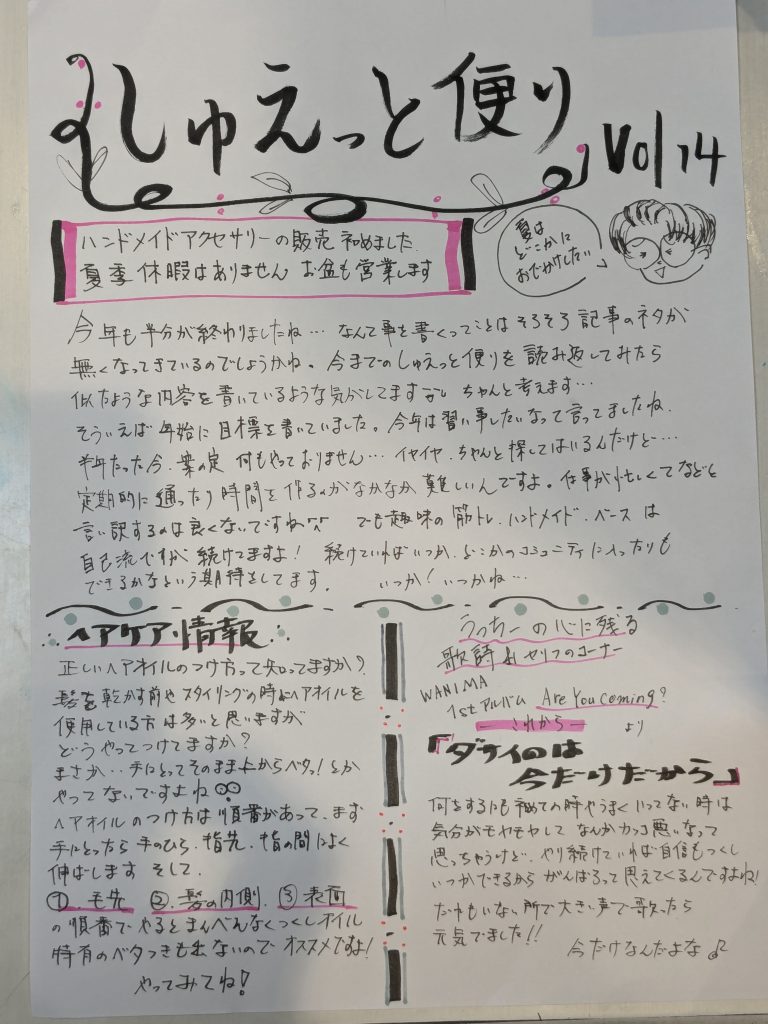 しゅえっと便り
Vol 14
ハンドメイドアクセサリーの販売 初めました.
夏季休暇はありません お盆も営業します
夏は
どこかに
おでかけしたい
今年も半分が終わりましたね… なんて事を書くってことは そろそろ記事のネタが
無くなってきているのでしょうかね。今までのしゅえっと便りを 読み返してみたら
似たような内容を書いているような気がしてます ちゃんと考えます…
そういえば 年始に目標を書いていました。今年は習い事したいなって言ってましたね.
半年たった今.案の定 何もやっておりません… イヤイヤ.ちゃんと探してはいるんだけど….
定期的に通ったり時間を作るのがなかなか難しいんですよ。仕事が忙しくてなどと
言い訳するのは良くないですね^^ でも趣味の筋トレ.ハンドメイド.ベースは
自己流ですが続けてますよ! 続けていればいつか.どこかのコミュニティに入ったりも
できるかなという期待をしてます. いつか!いつかね…
ヘアケア情報
正しいヘアオイルのつけ方って知ってますか?
髪を乾かす前やスタイリングの時にヘアオイルを
使用している方は多いと思いますが
どうやってつけてますか?
まさか‥手にとってそのまま上からベタッ!とか
やってないですよね
ヘアオイルのつけ方は順番があって.まず
手にとったら手のひら.指先.指の間によく
伸ばします そして.
①.毛先 ②.髪の内側.③表面
の順番でやるとまんべんなくつくしオイル
特有のベタつきも出ないのでオススメですよ!
やってみてね!
うっちーの心に残る
歌詩&セリフのコーナー
WANIMA
1stアルバム Are You Coming?
これから
より
「ダサイのは
今だけだから」
何をするにも初めての時やうまくいってない時は
気分がモヤモヤして なんかカッコ悪いなって
思っちゃうけど.やり続けていれば自信もつくし
いつかできるから がんばろって思えてくるんですよね!
だれもいない所で大きい声で歌ったら
元気でました!!
今だけなんだよな♪